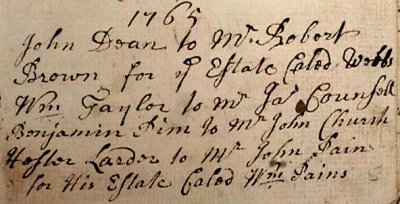 1765
John Dean to Mr Robert
Brown for ye Estate Caled Webbs
Wm Taylor to Mr Jas Counsell
Benjamin Pim to Mr John Church
Hester Larder to Mr John Pain
for His Estate Caled Wm Pains